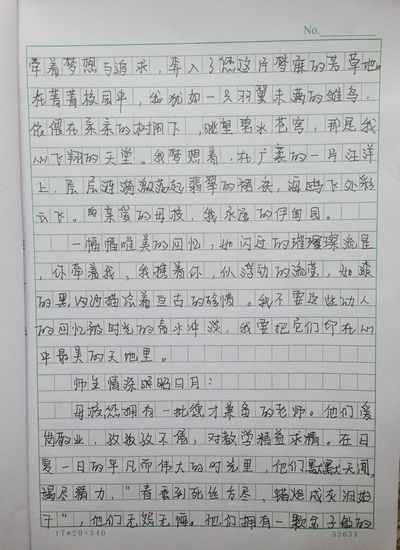 No.
牵着梦想与追求，奔入了您这片梦麻的芳草地。
在菁菁校园中，我犹如一只羽翼未满的雏鸟，
依偎在亲亲的树阴下，眺望碧水苍穹，那是我
心飞翔的天堂。我梦想着，在广袤的一片汪洋
上，层层涟漪激荡起翡翠的褶皱，海鸥飞处彩
云飞。啊亲爱的母校，我永远的伊甸园。
一幅幅唯美的回忆，如闪过的璀璨流星，
你牵着我，我携着你，似浮动的流萤，如漆
的黑内波描绘着亘古的铃惜。我不要这些动人
的回忆被时光的海水冲淡，我要把它们印在心
中最美的天地里。
师生情深照明日月：
母校您拥有一批德才兼备的老师。他们爱
岗敬业，孜孜孜不倦，对教学精益求精。在日
复一日的平凡而伟大的时光里，他们默默无闻，
竭尽精力，“春蚕到死丝方尽，蜡炬成灰泪始
干”，他们无怨无悔。他们拥有一颗金子般的
17*20=340
53633